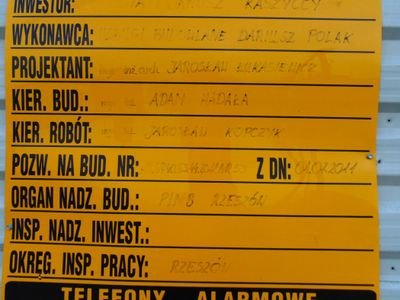 INWESTOR: KASZYCCY
WYKONAWCA: USŁUGI BUDOWLANE DARIUSZ POLAK
PROJEKTANT: mgr inż. arch. JAROSŁAW ŁUKASIEWICZ
KIER. BUD.: mgr inż. ADAM HADAŁA
KIER. ROBÓT: JAROSŁAW KOPCZYK
POZW. NA BUD. NR: Z DN: 01.07.2011
ORGAN NADZ. BUD.: PINB RZESZÓW
INSP. NADZ. INWEST.:
OKRĘG. INSP. PRACY: RZESZÓW
TELEFONY ALARMOWE